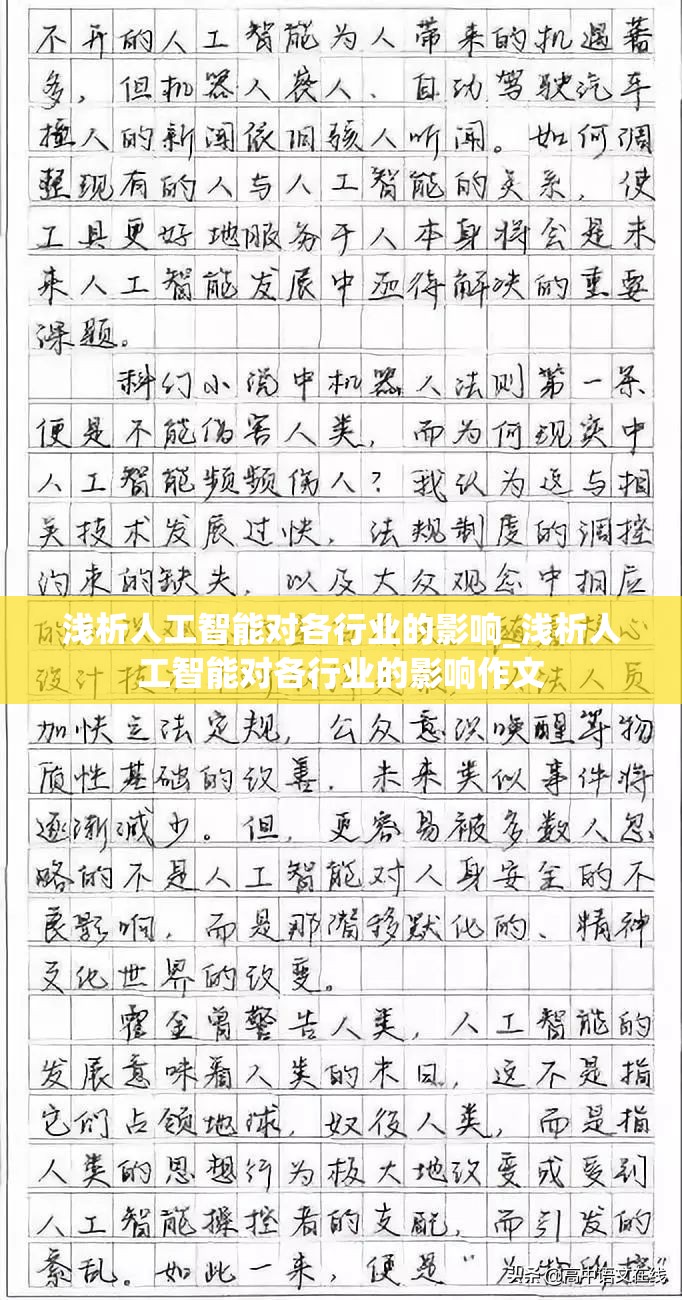 不开的人工智能为人带来的机遇蕃
多，但机器人丧人、自动驾驶汽车
撞人的新闻依旧骇人听闻。如何调
整现有的人与人工智能的关系，使
工具更好地服务于人本身将会是未
来人工智能发展中亟待解决的重要
课题。
科幻小说中机器人法则第一条
便是不能伤害人类，而为何现实中
人工智能频频伤人？我认为这与相
关技术发展过快，法规制度的调控
约束的缺失，以及大众观念中相应
浅析人工智能对各行业的影响_浅析人
工智能对各行业的影响作文
设计技 法人员
加快立法定规，公众意识唤醒等物
质性基础的改善，未来类似事件将
逐渐减少。但，更容易被多数人忽
略的不是人工智能对人身安全的不
良影响，而是那潜移默化的、精神
文化世界的改变。
霍金曾警告人类，人工智能的
发展意味着人类的末日，这不是指
它们占领地球，奴役人类，而是指
人类的思想行为极大地改变或受到
人工智能操控者的支配，而引发的
紊乱。如此一来，便是“为物所控”
头条@高中语文在线